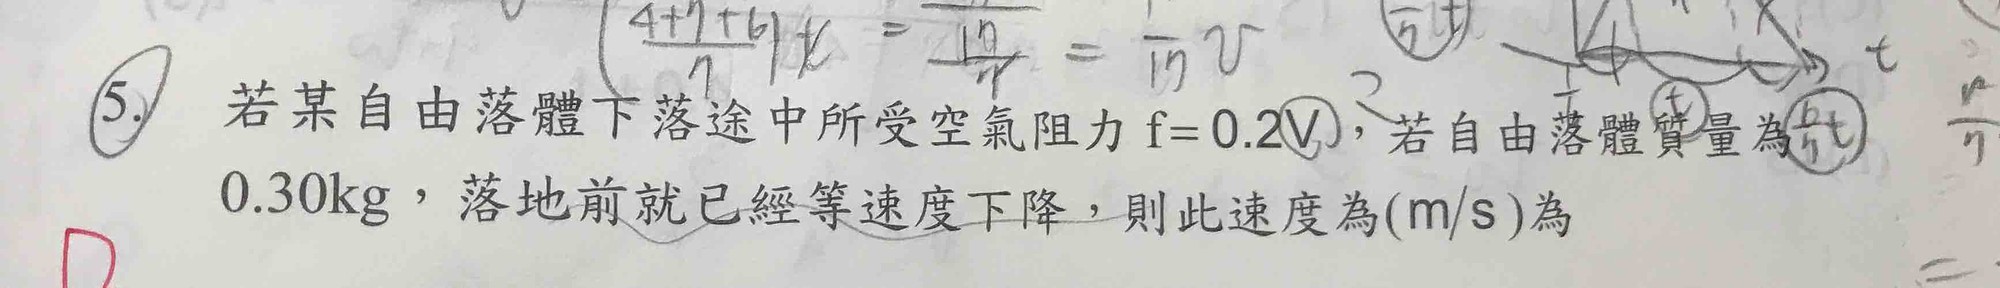 (4+7+6 / 7) t = 17/7 = 17 V
t
5. 若某自由落體下落途中所受空氣阻力 f= 0.2V，若自由落體質量為
0.30kg，落地前就已經等速度下降，則此速度為(m/s)為